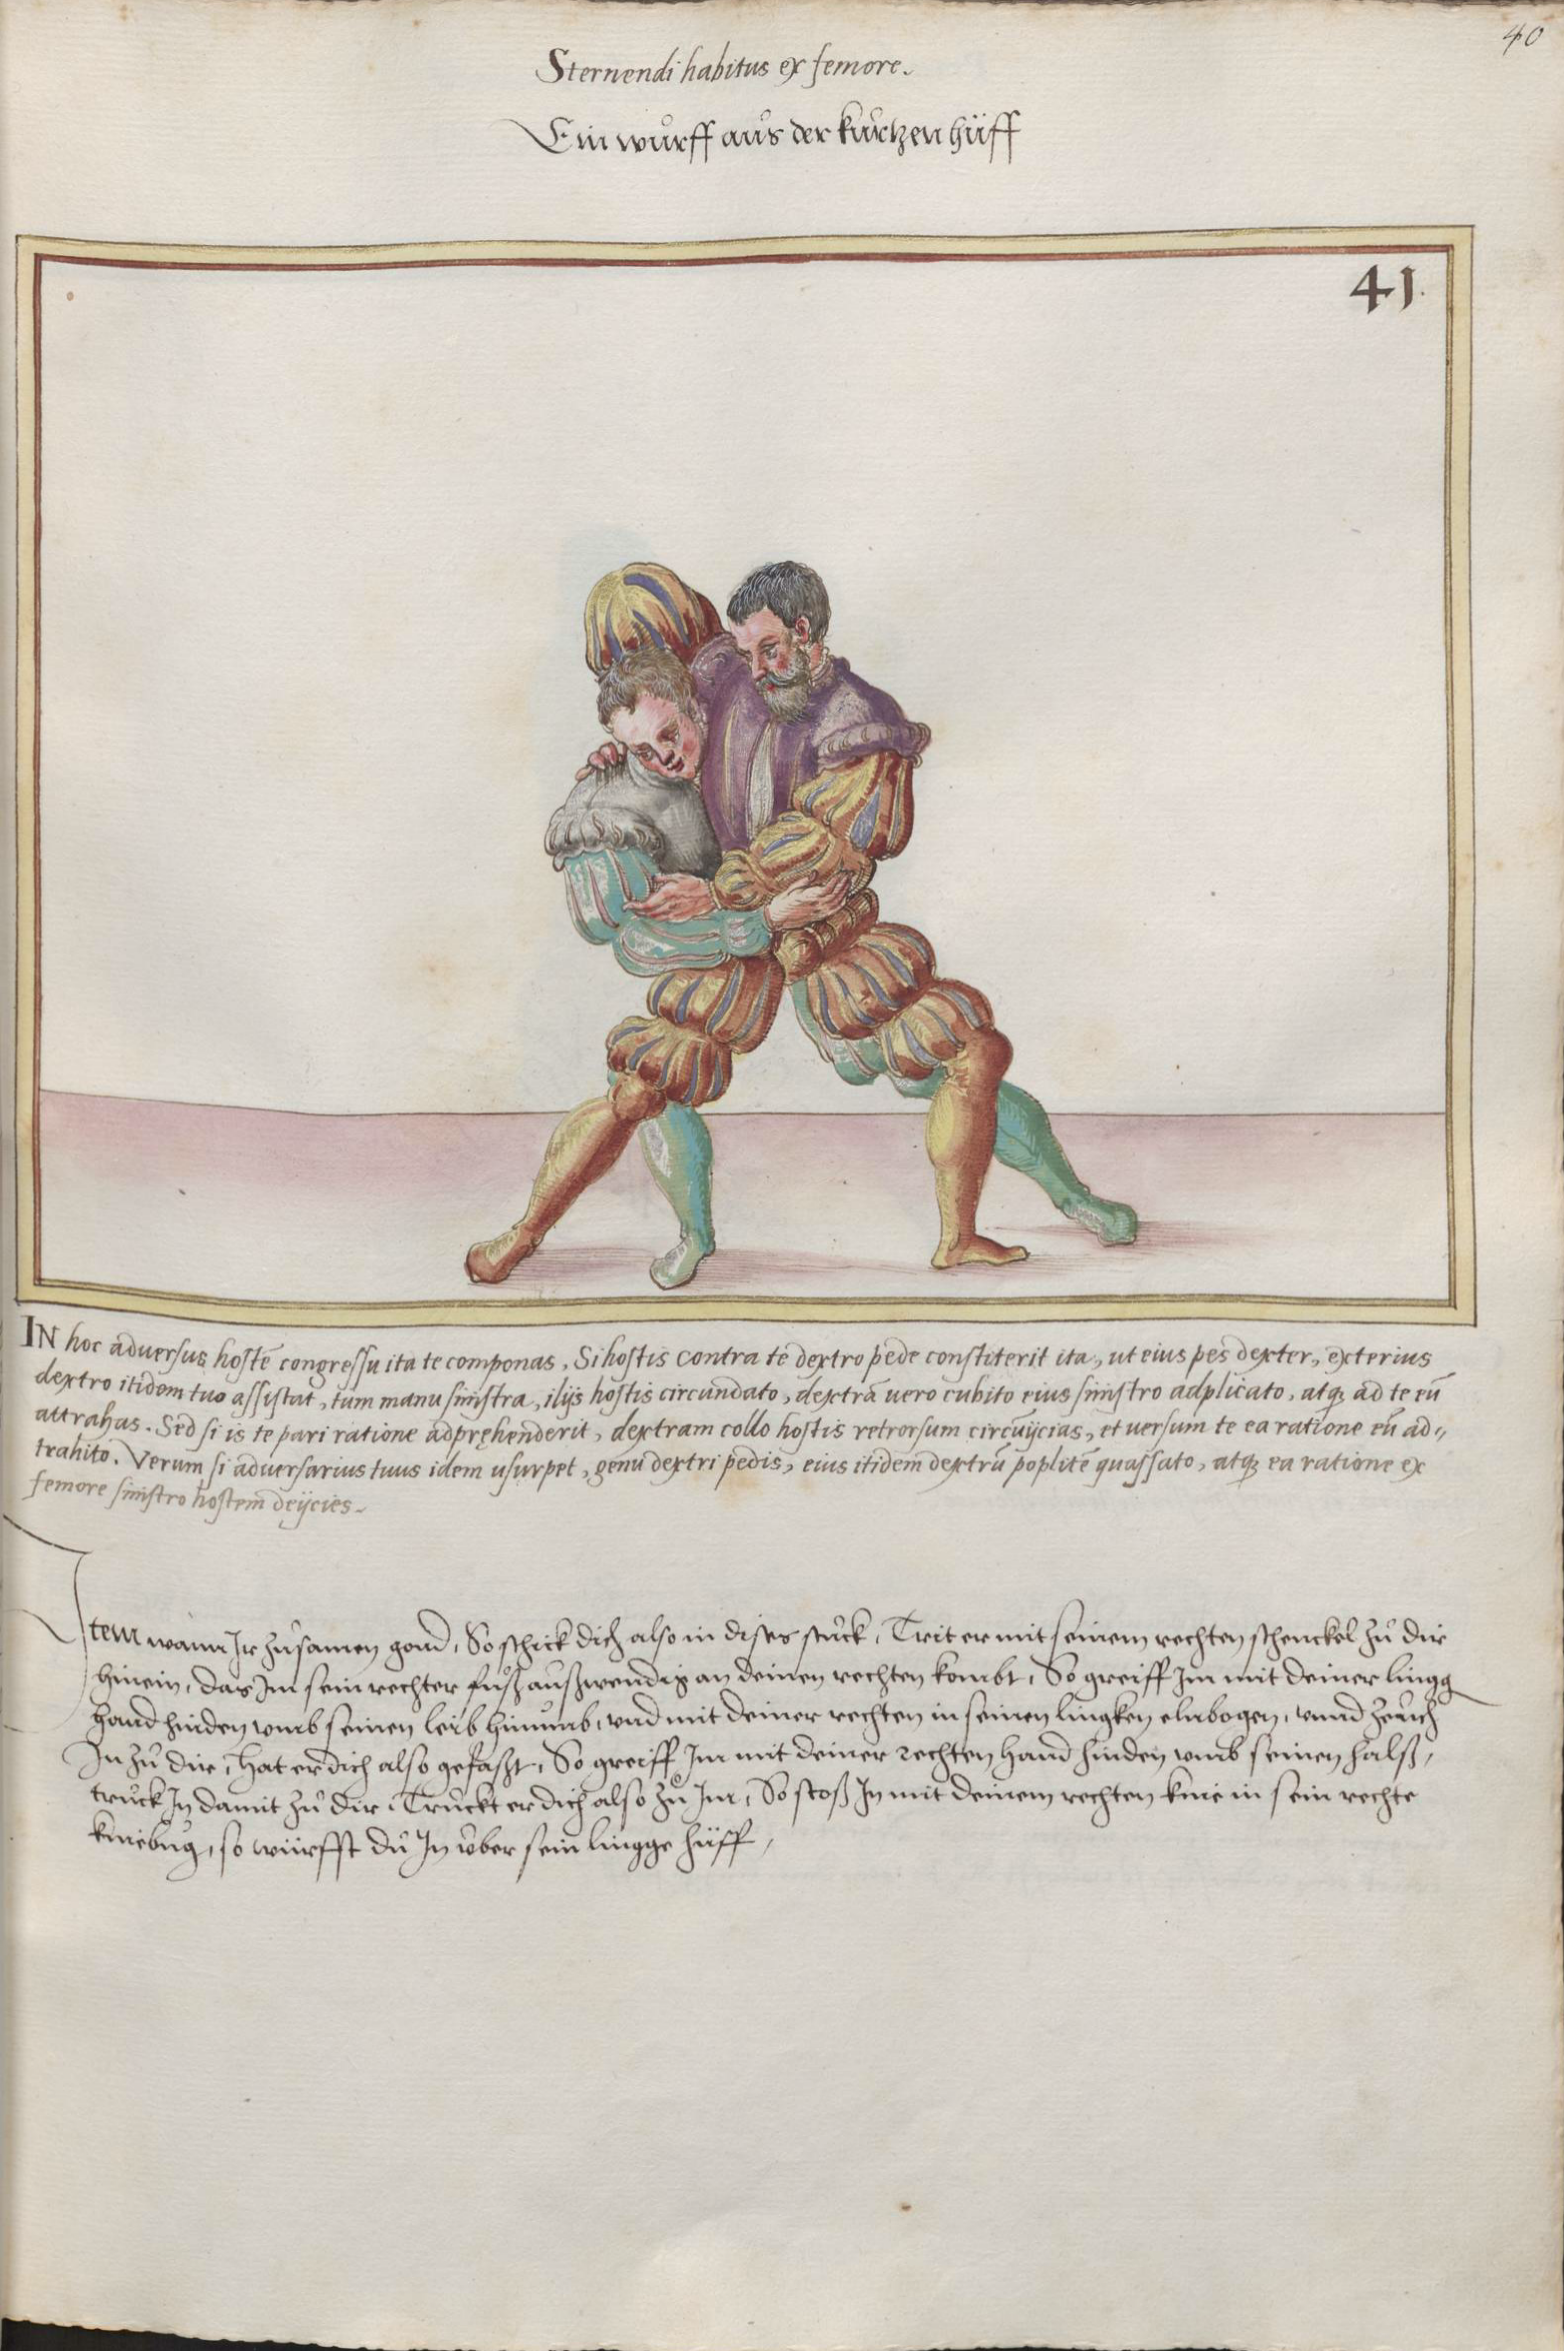 40
Sternendi habitus ex femore.
Ein wurff aus der kurtzen hüff
41.
IN hoc aduersus hostē congressu ita te componas, Si hostis contra te dextro pede constiterit ita, ut eius pes dexter, exterius
dextro itidem tuo assistat, tum manu sinistra, ilijs hostis circundato, dextrā uero cubito eius sinistro adplicato, atq; ad te eū
attrahas. Sed si is te pari ratione adpręhenderit, dextram collo hostis retrorsum circūijcias, et uersum te ea ratione eū ad„
trahito. Verum si aduersarius tuus idem usurpet, genu dextri pedis, eius itidem dextrū poplitē quassato, atq; ea ratione ex
femore sinistro hostem deijcies.
Item wann Ir zůsamen gond, So schick dich also in dises stuck, Trit er mit seinem rechten schenckel zů dir
hinein, das Im sein rechter fůß außwendig an deinen rechten kombt, So greiff Im mit deiner lingg
hand hinden vmb seinen leib hinumb, vnd mit deiner rechten in seinen lingken elnbogen, vnnd zeuch
In zů dir, Hat er dich also gefaßt, So greiff Im mit deiner rechten hand hinden vmb seinen halß,
truck In damit zů dir, Truckt er dich also zů Im, So stoß In mit deinem rechten knie in sein rechte
kniebůg, so würffst du In über sein lingge hüff,